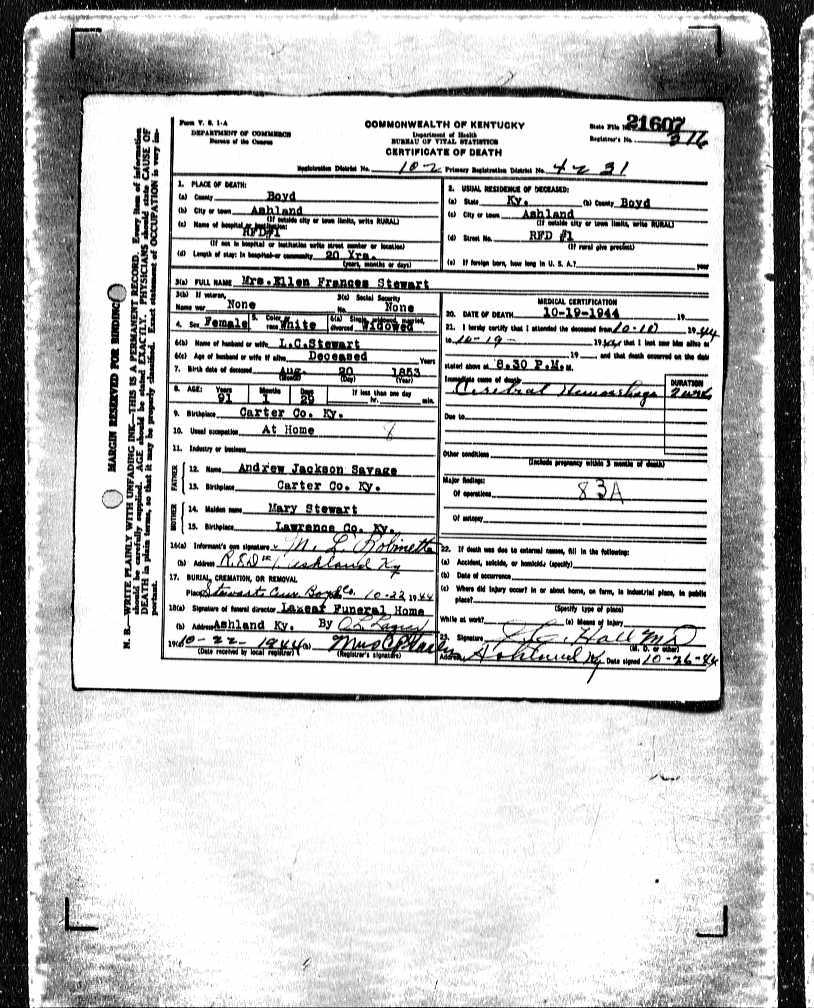 Form V. S. 1-A
DEPARTMENT OF COMMERCE
Bureau of the Census
COMMONWEALTH OF KENTUCKY
Department of Health
BUREAU OF VITAL STATISTICS
CERTIFICATE OF DEATH
State File No. 21607
Registrar's No. 316
Registration District No. 102 Primary Registration District No. 4231
MARGIN RESERVED FOR BINDING
N. B.—WRITE PLAINLY WITH UNFADING INK—THIS IS A PERMANENT RECORD. Every item of information
should be carefully supplied. AGE should be stated EXACTLY. PHYSICIANS should state CAUSE OF
DEATH in plain terms, so that it may be properly classified. Exact statement of OCCUPATION is very im-
portant.
1. PLACE OF DEATH:
(a) County Boyd
(b) City or town Ashland
(If outside city or town limits, write RURAL)
(c) Name of hospital or institution:
RFD#1
(If not in hospital or institution write street number or location)
(d) Length of stay: In hospital or community 20 Yrs.
(years, months or days)
2. USUAL RESIDENCE OF DECEASED:
(a) State Ky. (b) County Boyd
(c) City or town Ashland
(If outside city or town limits, write RURAL)
(d) Street No. RFD #1
(If rural give precinct)
(e) If foreign born, how long in U. S. A.? year
3(a) FULL NAME Mrs. Ellen Frances Stewart
3(b) If veteran,
Name war None
3(c) Social Security
No. None
4. Sex Female 5. Color or race White 6(a) Single, widowed, married, divorced Widowed
6(b) Name of husband or wife L.C.Stewart
6(c) Age of husband or wife if alive Deceased Years
7. Birth date of deceased Aug. 20 1853
(Month) (Day) (Year)
8. AGE: Years Months Days If less than one day
91 1 29 hr. min.
9. Birthplace Carter Co. Ky.
10. Usual occupation At Home
11. Industry or business
FATHER
12. Name Andrew Jackson Savage
13. Birthplace Carter Co. Ky.
MOTHER
14. Maiden name Mary Stewart
15. Birthplace Lawrence Co. Ky.
16(a) Informant's own signature M. L. Robinette
(b) Address R.F.D. #1, Ashland Ky
17. BURIAL, CREMATION, OR REMOVAL
Place Stewart Cem. Boyd Co. 10-22 1944
18(a) Signature of funeral director Lazear Funeral Home
(b) Address Ashland Ky. By
19(a) 10-22-1944 (b)
(Date received by local registrar) (Registrar's signature)
MEDICAL CERTIFICATION
20. DATE OF DEATH 10-19-1944 19
21. I hereby certify that I attended the deceased from 10-10 1944
to 10-19- 1944 that I last saw him alive on
19 and that death occurred on the date
stated above at 8.30 P.M. M.
Immediate cause of death DURATION
Cerebral Hemorrhage
Due to
Other conditions
(Include pregnancy within 3 months of death)
Major findings:
Of operations 83A
Of autopsy
22. If death was due to external causes, fill in the following:
(a) Accident, suicide, or homicide (specify)
(b) Date of occurrence
(c) Where did injury occur? In or about home, on farm, in industrial place, in public
place?
(Specify type of place)
While at work? (e) Means of injury
23. Signature J.C. Hall MD
(M. D. or other)
Address Ashland Ky. Date signed 10-26-44